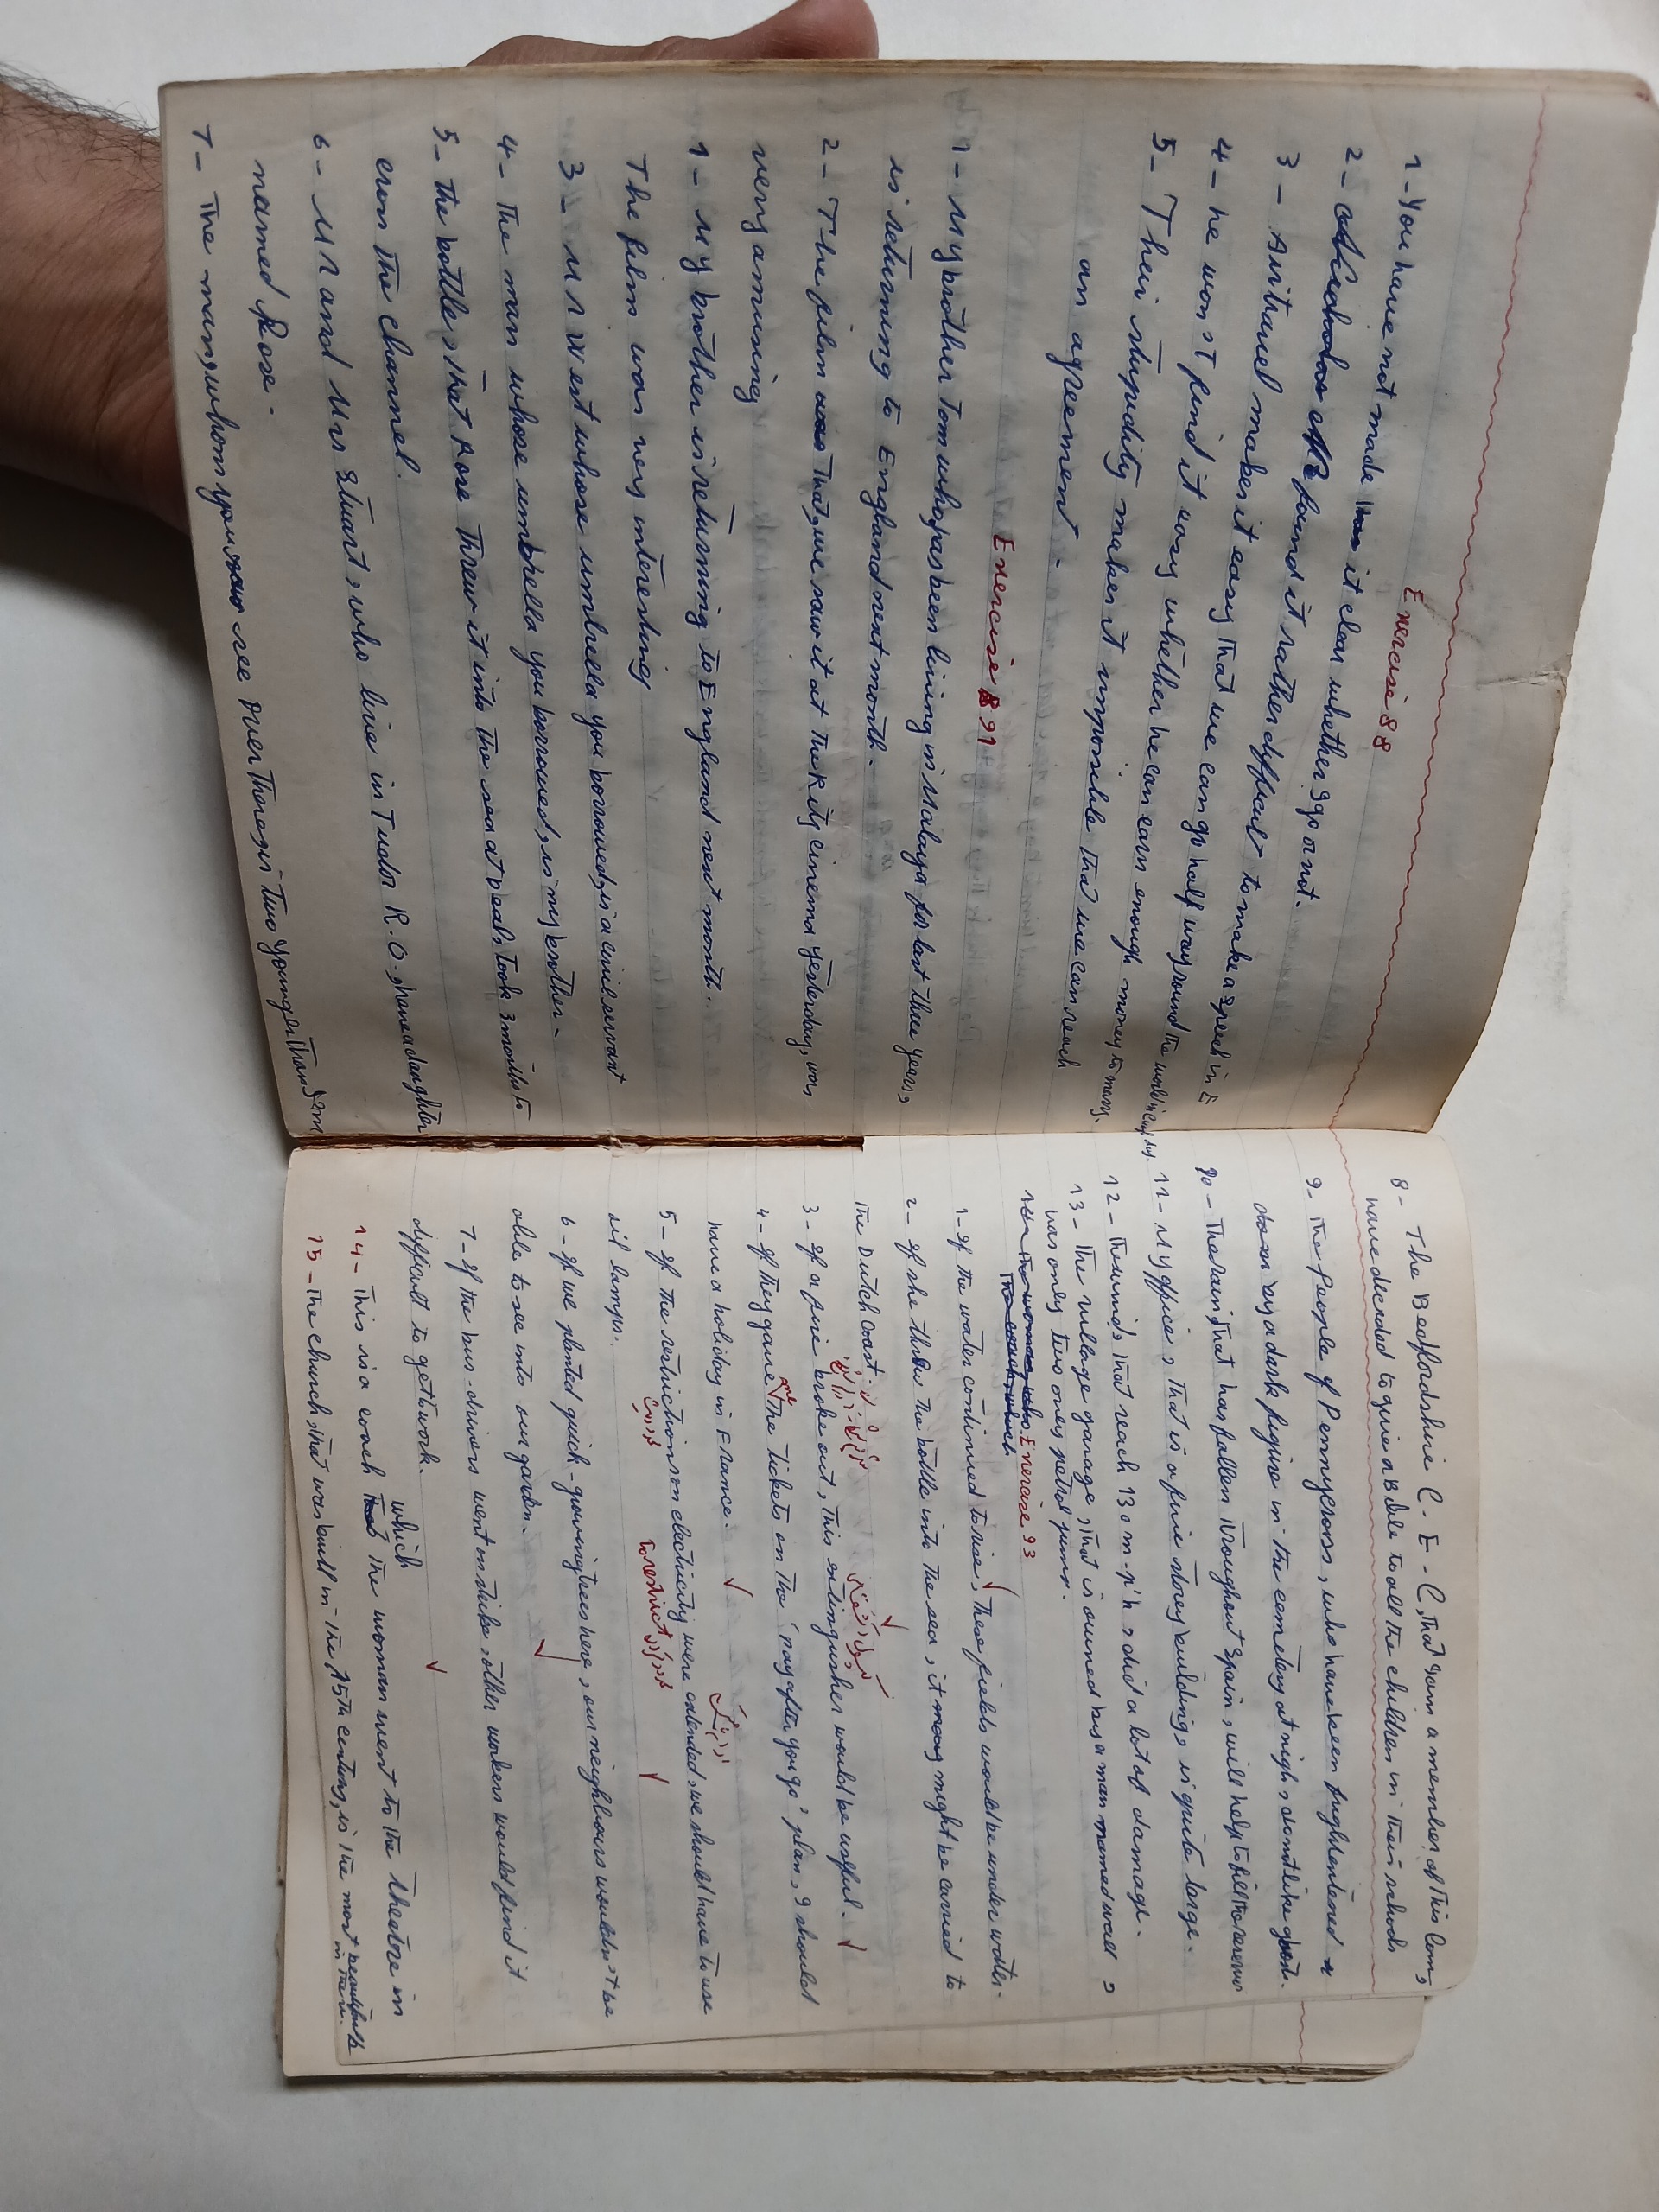 Exercise 88
1- You have not made it clear whether I go or not.
2- found it rather difficult to make a speech in E
3- Asitavel makes it easy that we can go half way round the world in
4- he won't find it easy whether he can earn enough money to marry.
5- Their stupidity makes it impossible that we can reach
an agreement.
Exercise 91
1- My brother Tom who has been living in Malaya for last three years,
is returning to England next month.
2- The film that, we saw it at the Rity cinema yesterday, was
very amusing
1- My brother is returning to England next month.
The film was very interesting
3- Mr West whose umbrella you borrowed, is a civil servant
4- The man whose umbrella you borrowed, is my brother-
5- the bottle, that Rose threw it into the sea at Deal, took 3 months to
cross the channel.
6- Mr and Mrs Stuart, who live in Tudor R.O., have a daughter
named Rose.
7- The man, whom you see over there, is two younger than I am
8- The Bedfordshire C.E.C, that I am a member of this Com,
have decided to give a Bible to all the children in their schools
9- the people of Pennycross, who have been frightened
by a dark figure in the cemetery at nigh, dont like ghost.
10- The rain, that has fallen throughout Spain, will help to fill the reserves
11- My office, that is a fine storey building, is quite large.
12- the winds that reach 130 m.p.h, did a lot of damage.
13- the village garage, that is owned by a man named wall,
was only two ones petrol pums.
Exercise 93
1- If the water continued to rise, these fields would be under water.
2- If she threw the bottle into the sea, it might be carried to
the Dutch coast.
3- If a fire broke out, this extinguisher would be useful.
4- If they gave me the tickets on the 'pay after you go' plan, I should
have a holiday in France.
5- If the restrictions on electricity were extended, we should have to use
oil lamps.
to restrict
6- If we planted quick-growing trees here, our neighbours wouldn't be
able to see into our garden.
7- If the bus-drivers went on strike, other workers would find it
difficult to get to work.
14- This is a coach which the woman went to the theatre in
15- the church, that was built in the 15th century, is the most beautiful